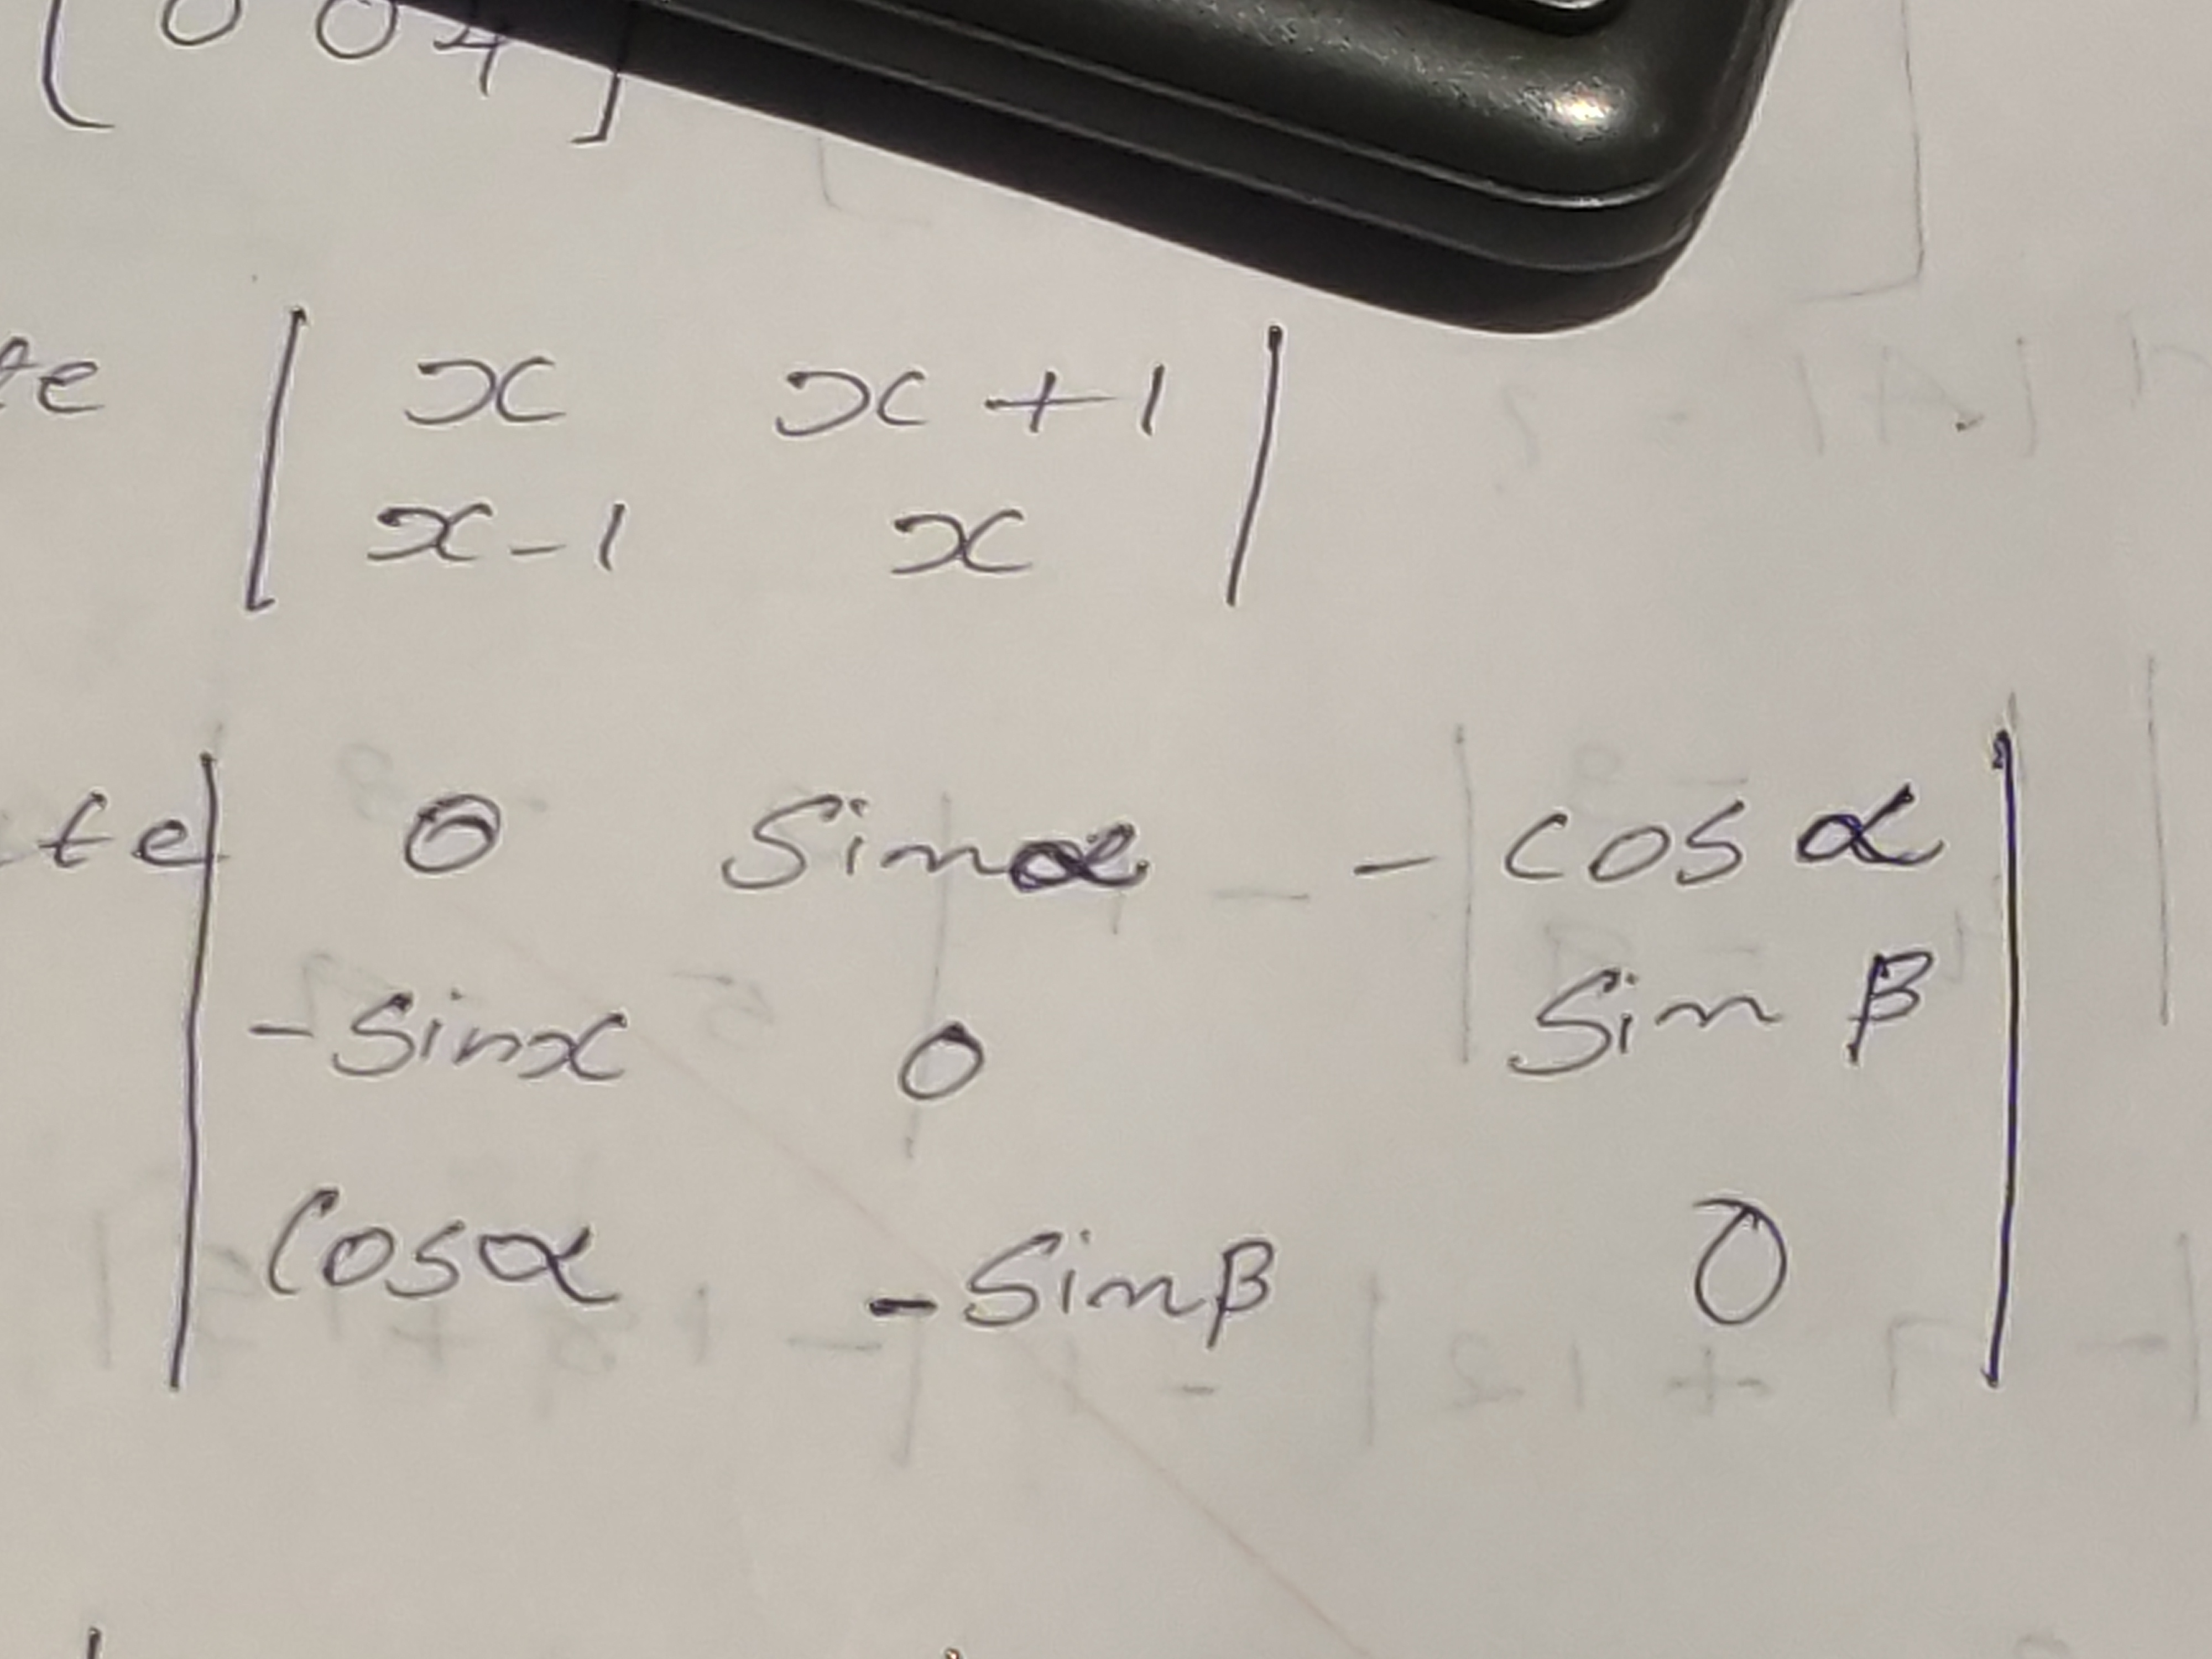 0 0 4
te x x + 1
x - 1 x
te 0 Sinα - cos α
- Sinx 0 Sin β
Cosα - Sinβ 0